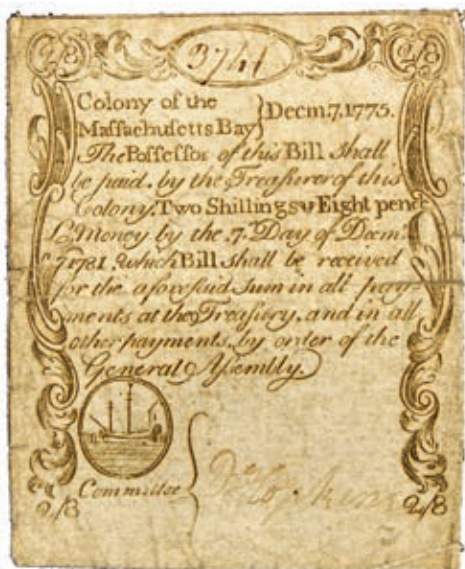 2/8 3741 2/8
Colony of the
Massachusetts Bay } Decm. 7. 1775.
The Possessor of this Bill shall
be paid. by the Treasurer of this
Colony. Two Shillings & Eight pence
L. Money by the .7. Day of Decmr.
1781. which Bill shall be received
for the aforesaid sum in all pay-
ments at the Treasury. and in all
other payments. by order of the
General Assembly
Committee
2/8 2/8